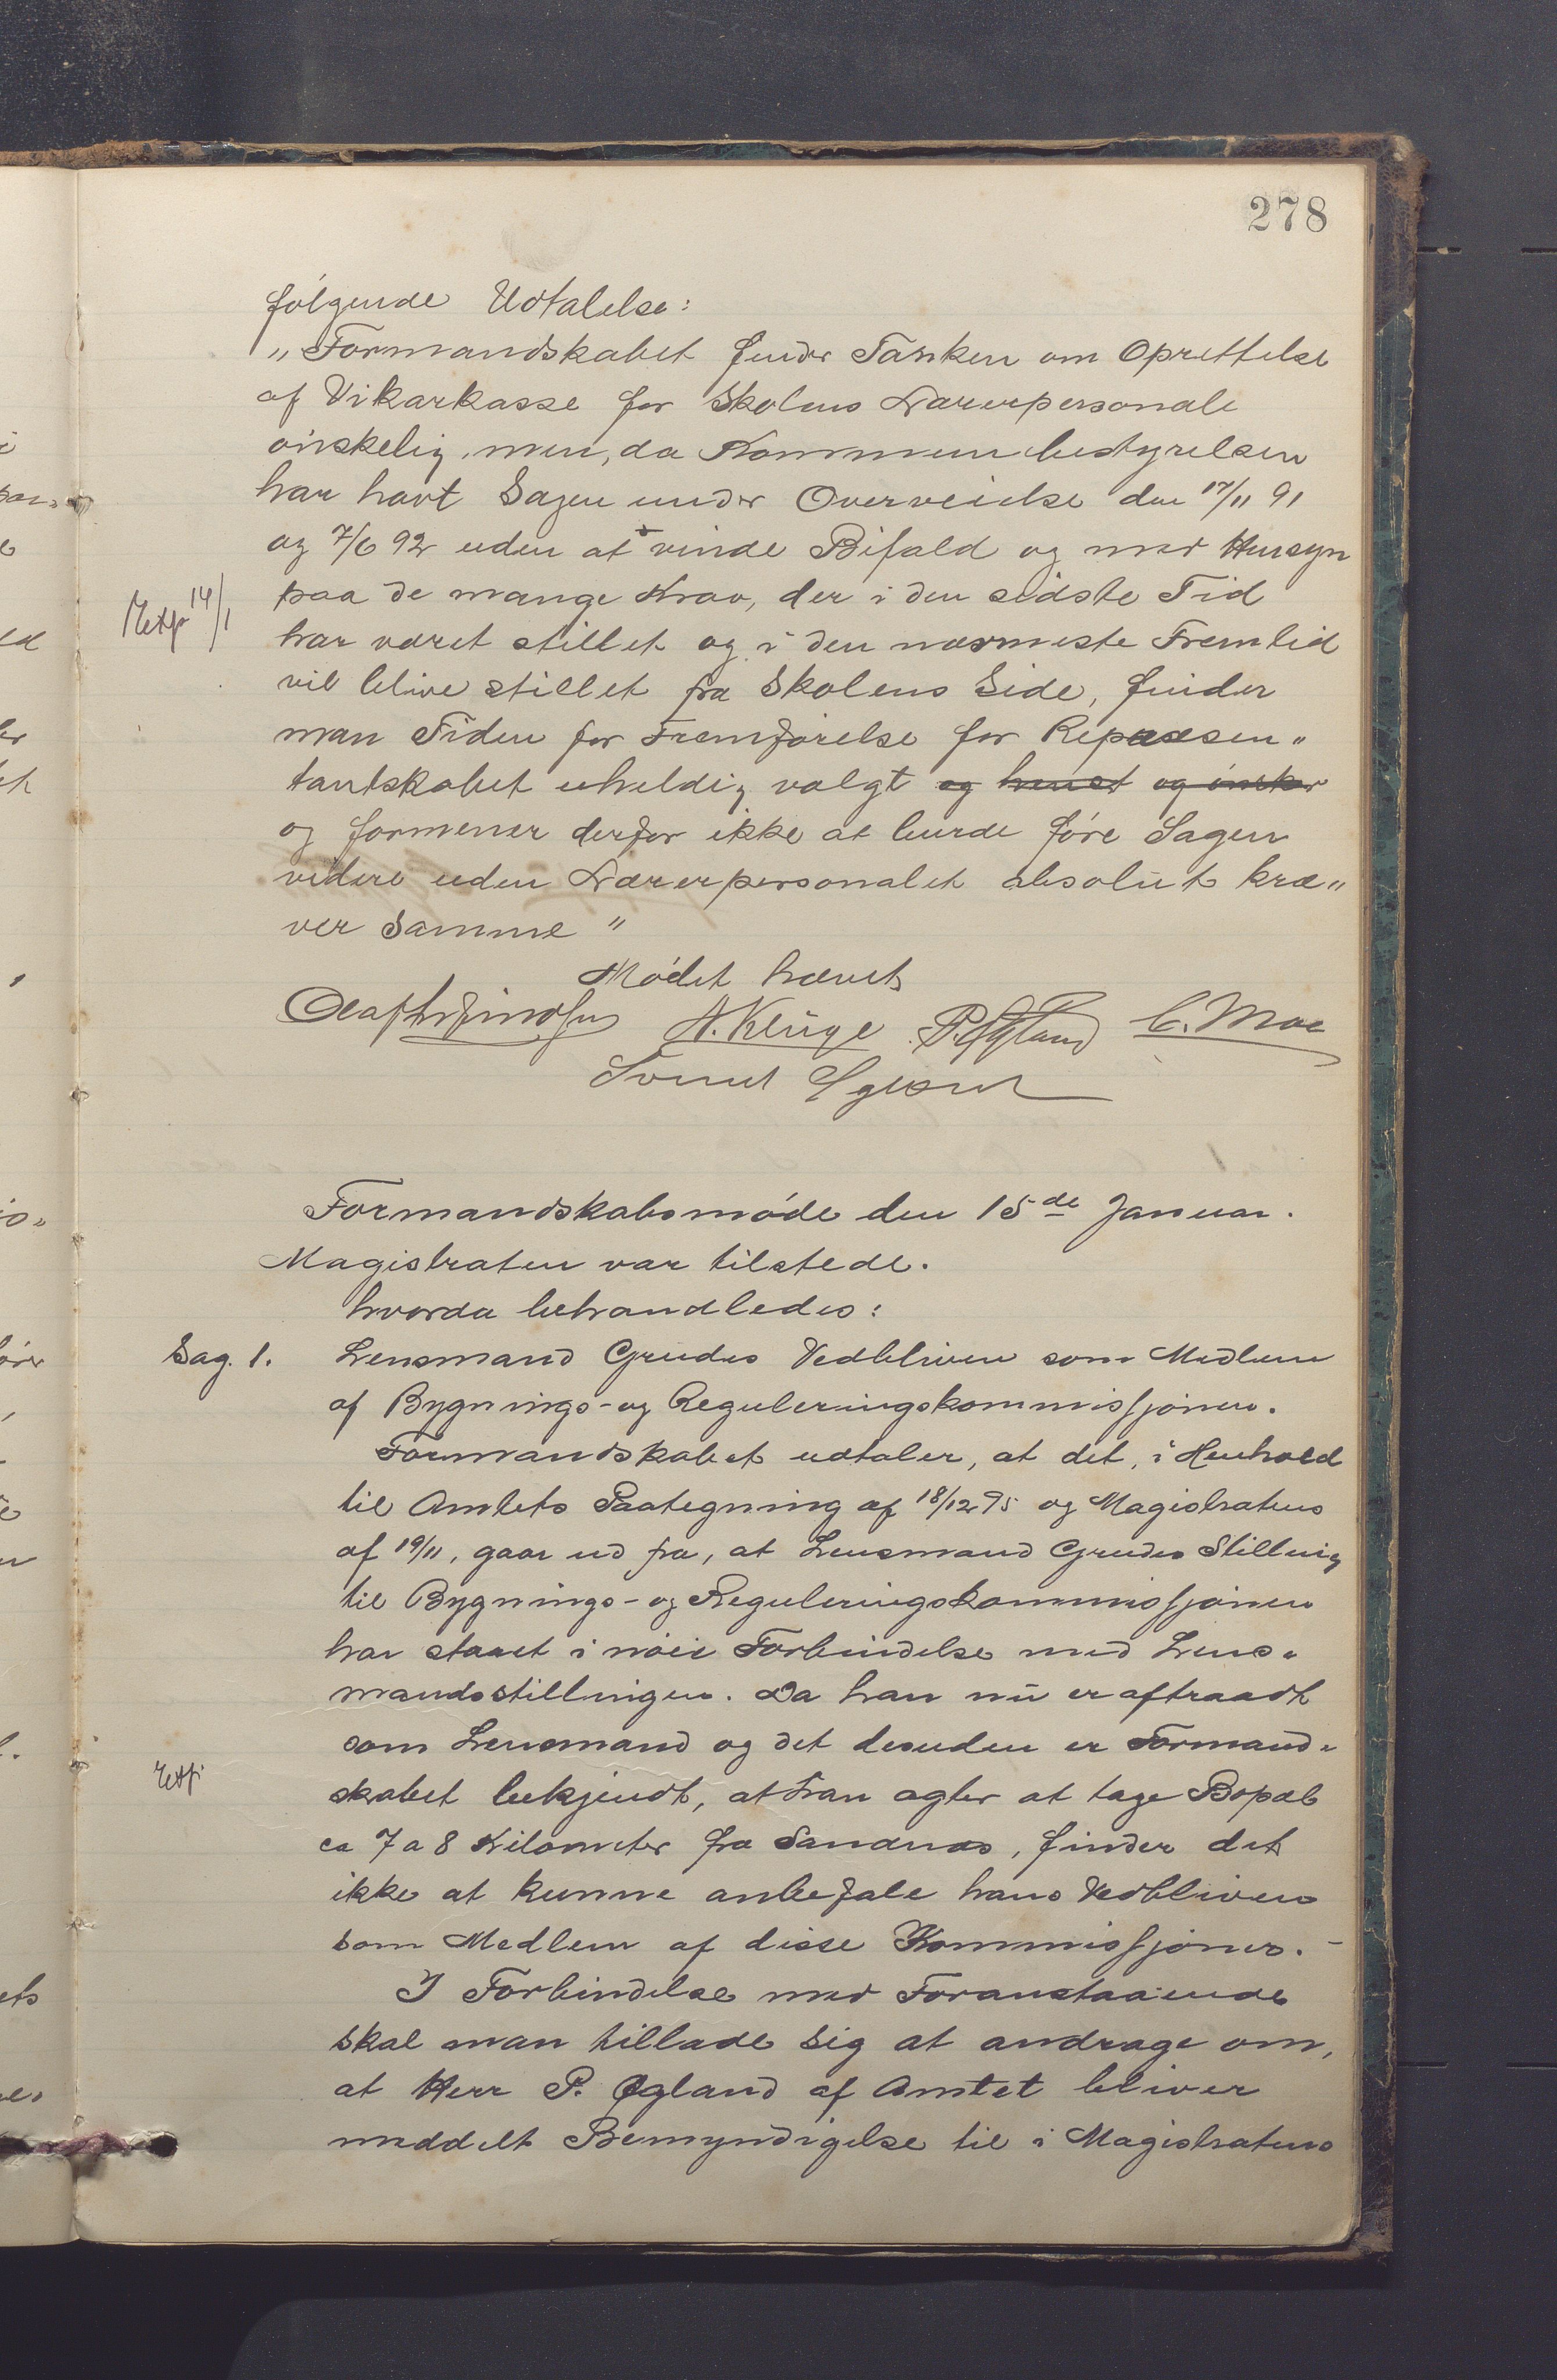 278
følgende Udtalelse:
„Formandskabet finder Tanken om Oprettelse
af Vikarkasse for Skolens Lærerpersonale
ønskelig, men, da Kommunebestyrelsen
har havt Sagen under Overveielse den 17/11 91
og 7/6 92 uden at vinde Bifald og med Hensyn
Extr 14/1
paa de mange Krav, der i den sidste Tid
har været stillet og i den nærmeste Fremtid
vil blive stillet fra Skolens Side, finder
man Tiden for Fremførelse for Repæsen„
tantskabet uheldig valgt og henst og ønsker
og formener derfor ikke at burde føre Sagen
videre uden Lærerpersonalet absolut kræ„
ver Samme "
Mødet hævet
A. Kluge P. Øgland C. Moe
Formandskabsmøde den 15de Januar.
Magistraten var tilstede.
hvorda behandledes:
Sag. 1. Lensmand Grudes Vedbliven som Medlem
af Bygnings- og Reguleringskommissjonen.
Formandskabet udtaler, at det, i Henhold
til Amtets Paategning af 18/12 95 og Magistratens
af 19/11, gaar ud fra, at Lensmand Grudes Stilling
til Bygnings- og Reguleringskommissjonen
har staaet i nøie Forbindelse med Lens„
mandsstillingen. Da han nu er aftraadt
som Lensmand og det desuden er Formand„
Extr
skabet bekjendt, at han agter at tage Bopæl
ca 7 a 8 Kilometer fra Sandnæs, finder det
ikke at kunne anbefale hans Vedbliven
som Medlem af disse Kommissjoner. -
I Forbindelse med Foranstaaende
skal man tillade sig at andrage om,
at Herr P. Øgland af Amtet bliver
meddelt Bemyndigelse til i Magistratens